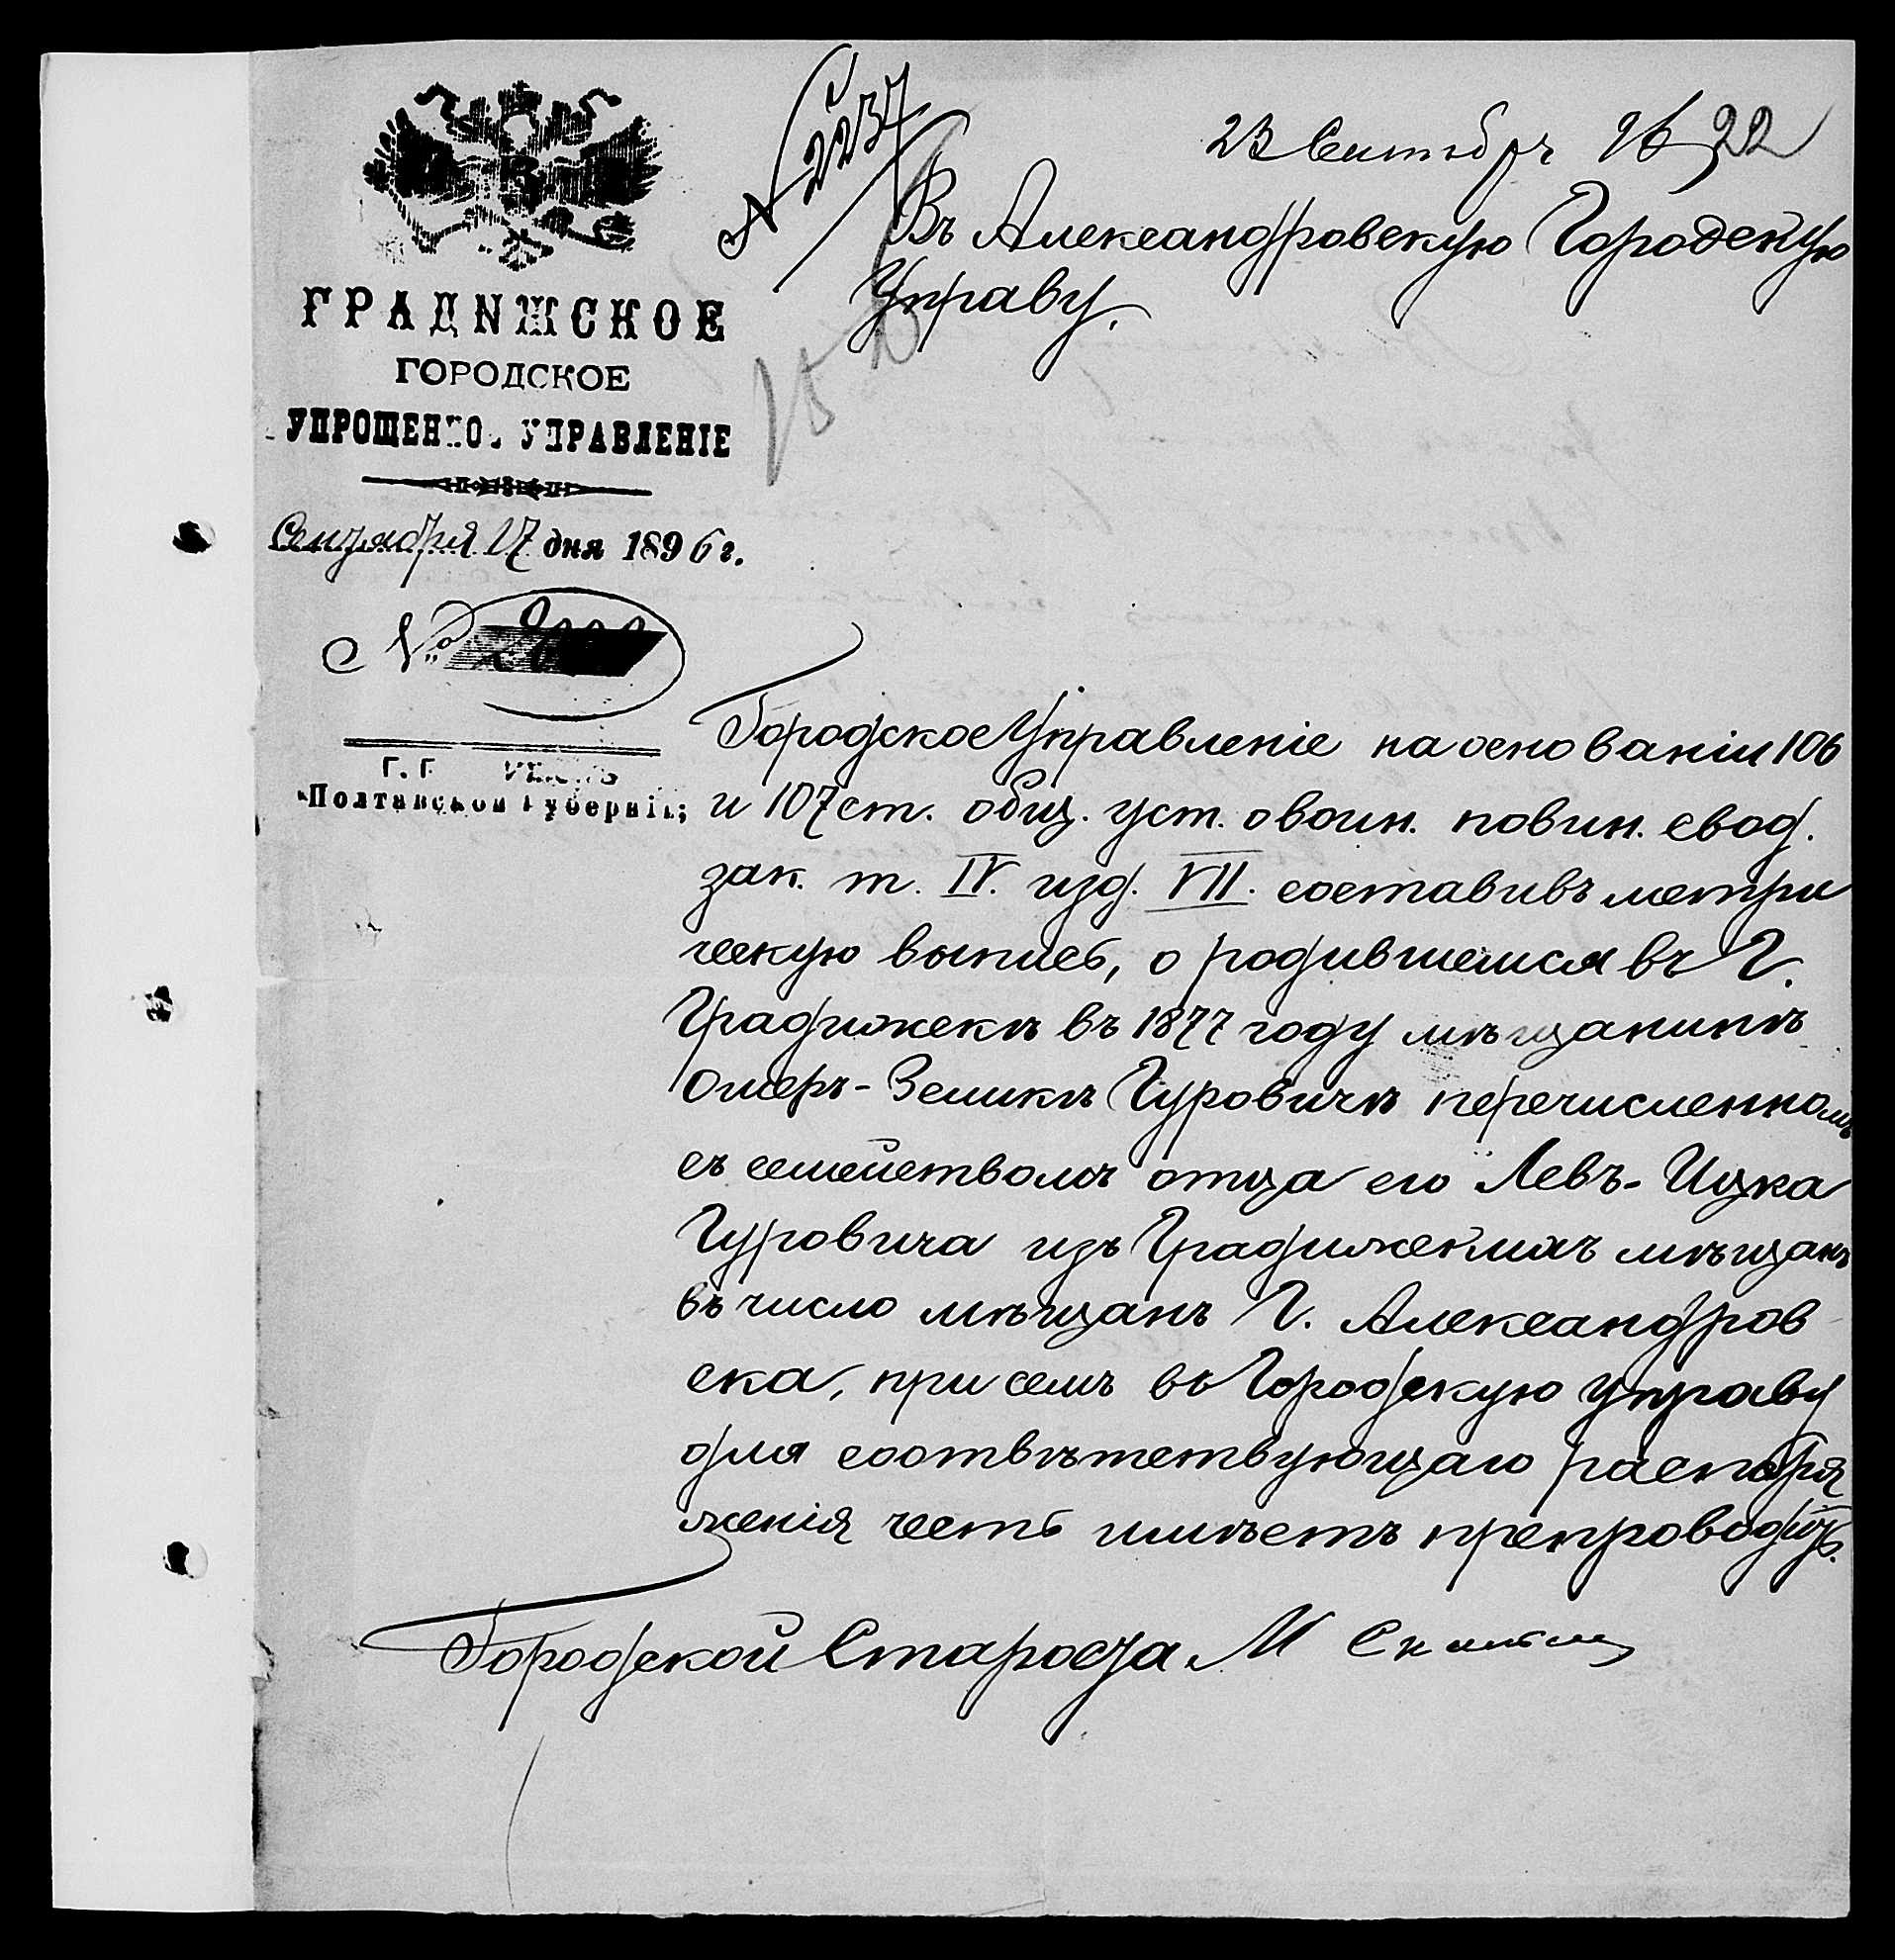 № 2237
23 Сентябрь
Въ Александровскую Городскую
Управу.
ГРАДИЖСКОЕ
ГОРОДСКОЕ
УПРОЩЕННОЕ УПРАВЛЕНІЕ
Сентября 17 дня 1896 г.
№
Г. Г
Полтавской Губерніи;
Городское Управленіе на основаніи 106
и 107 ст. общ. уст. о воин. повин. свод.
зак. т. IV. изд. VII. составивъ метри
ческую выпись, о родившемся въ Г.
Градижскѣ въ 1877 году мѣщанинѣ
Ошеръ-Зеликѣ Гуровичѣ перечисленномъ
съ семействомъ отца его Левъ-Ицка
Гуровича изъ Градижскихъ мѣщанъ
въ число мѣщанъ Г. Александров
ска, при семъ въ Городскую управу
для соотвѣтствующаго распоря
женія честь имѣетъ препроводить.
Городской Староста М